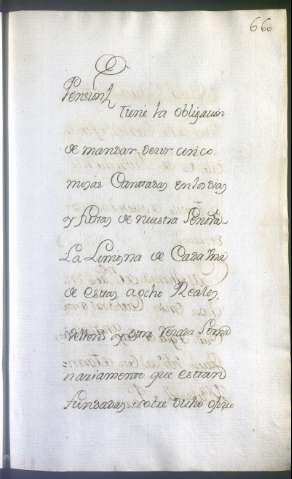 660
Pension
Tiene la obligacion
de mandar decir cinco
misas Cantadas en los dias
y fiestas de nuestra Señora
La Limosna de Cada Una
de estas a ocho Reales
Vellon y otra Rezada
que estan
fundadas sobre dicho